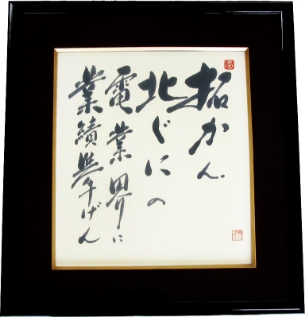 拓かん
北ぐにの
電業界に
業績挙げん